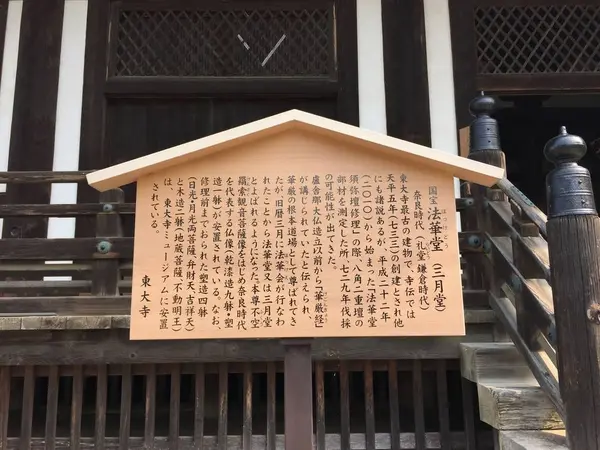 国宝 法華堂（三月堂）
奈良時代（礼堂 鎌倉時代）
東大寺最古の建物で、寺伝では
天平五年（七三三）の創建とされ他
にも諸説あるが、平成二十二年
（二〇一〇）から始まった「法華堂
須弥壇修理」の際、八角二重壇の
部材を測定した所、七二九年伐採
の可能性が出てきた。
盧舎那大仏造立以前から『華厳経』
が講じられていたと伝えられ、
華厳の根本道場として尊ばれてき
たが、旧暦三月に法華会が行なわ
れたことから法華堂又は三月堂
とよばれるようになった。本尊不空
羂索観音菩薩像をはじめ奈良時代
を代表する仏像（乾漆造九躰・塑
造一躰）が安置されている。なお、
修理前までおられた塑造四躰
（日光・月光両菩薩、弁財天、吉祥天）
と木造二躰（地蔵菩薩、不動明王）
は、東大寺ミュージアムに安置
されている。
東大寺